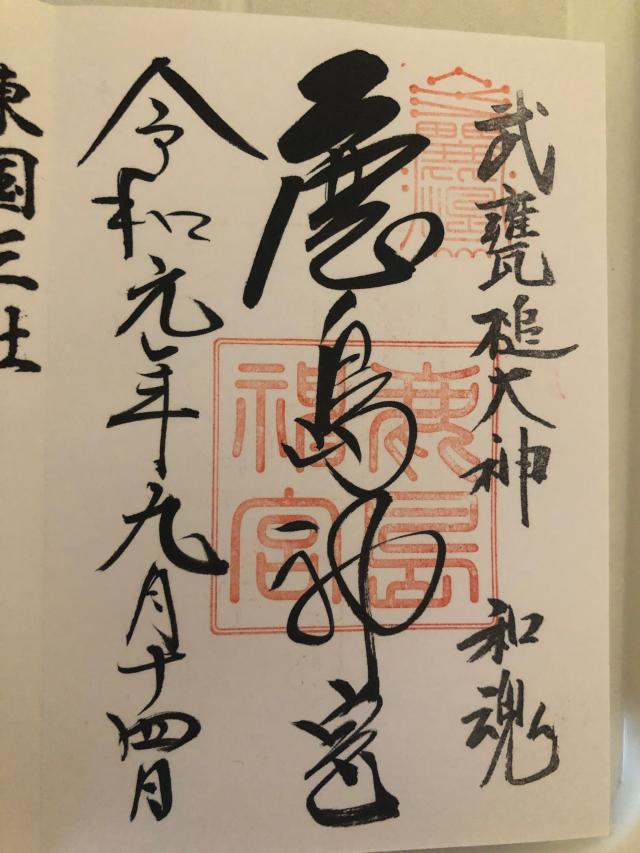 武甕槌大神 和魂
鹿島神宮
鹿島
神宮
令和元年九月十四日
東国三社